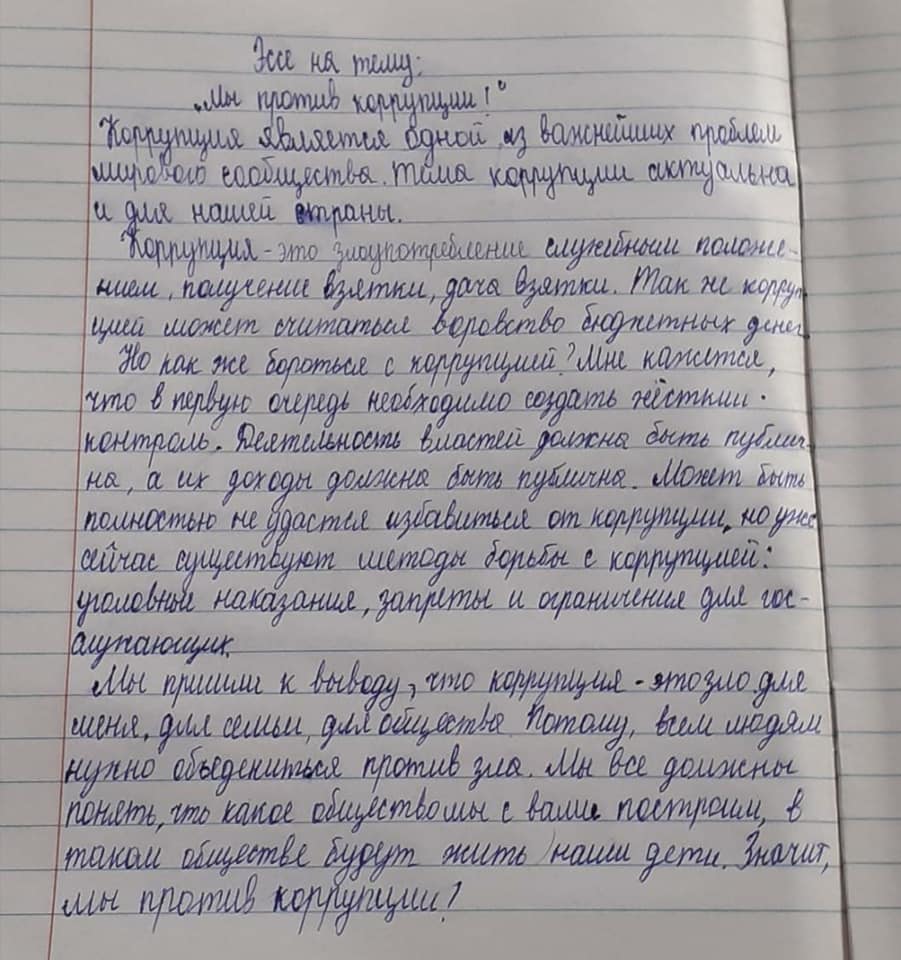 Эссе на тему:
„Мы против коррупции!"
Коррупция является одной из важнейших проблем
мирового сообщества. Тема коррупции актуальна
и для нашей страны.
Коррупция - это злоупотребление служебным положе-
нием, получение взятки, дача взятки. Так же корруп
цией может считаться воровство бюджетных денег.
Но как же бороться с коррупцией? Мне кажется,
что в первую очередь необходимо создать жёсткий
контроль. Деятельность властей должна быть публич-
на, а их доходы должна быть публична. Может быть
полностью не удастся избавиться от коррупции, но уже
сейчас существуют методы борьбы с коррупцией:
уголовные наказания, запреты и ограничения для гос-
служающих.
Мы пришли к выводу, что коррупция - это зло для
меня, для семьи, для общества. Потому, всем людям
нужно объедениться против зла. Мы все должны
понять, что какое общество мы с вами построим, в
таком обществе будут жить наши дети. Значит,
мы против коррупции!